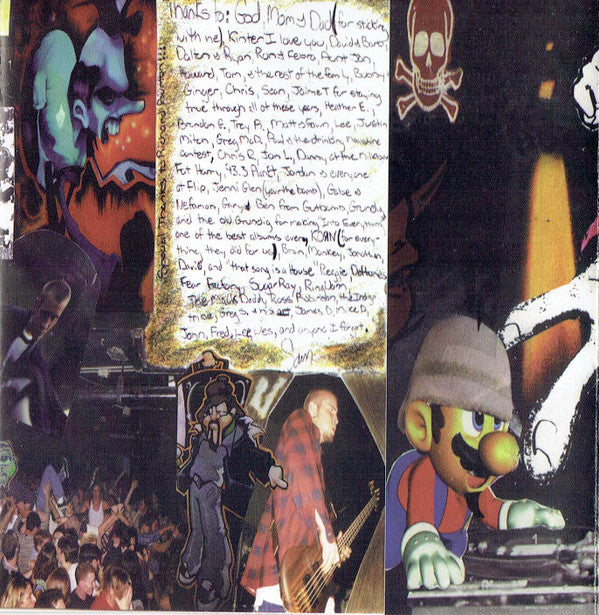 Thanks to: God, Mom & Dad (for sticking
with me) Kirsten I love you, David & Barb,
Dalton & Ryan, Rum & Fearo, Aunt Jan,
Howard, Tom, & the rest of the family, Bunny
Ginger, Chris, Sean, Jaime T for staying
true through all of these years, Heather E.,
Brendan E, Trey A, Matt & Fawn, Lee, Justin
Miton, Greg McD, Paul & the drinking, Moonshine
contest, Chris R, Jon L, Danny at the Milkbar
Fat Harry, 93.3 Planet, Jordan & everyone
at Flip, Jenni Glen (you're the bomb), Gabe &
Neforman, Gary & Ben from Gutbomb, Grundy
and the old Grundig for making Into Everything
one of the best albums ever, KORN (for every-
thing, they did for us) Brian, Monkey, Jonathan,
David, and "that song is a House" Reggie, Deftones,
Fear Factory, Sugar Ray, Ringworm,
Daddy, Ross Robinson, the Indigo
tribe, Greg S. James D, Mike D,
John, Fred, Lee, Wes, and anyone I forgot.
Sam